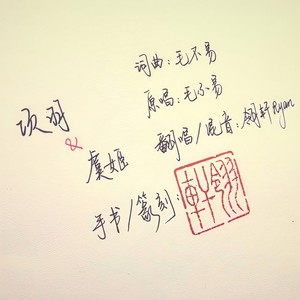 项羽
&
虞姬
词曲:毛不易
原唱:毛不易
翻唱/混音:翎轩Ryan
手书/篆刻:
翎軒